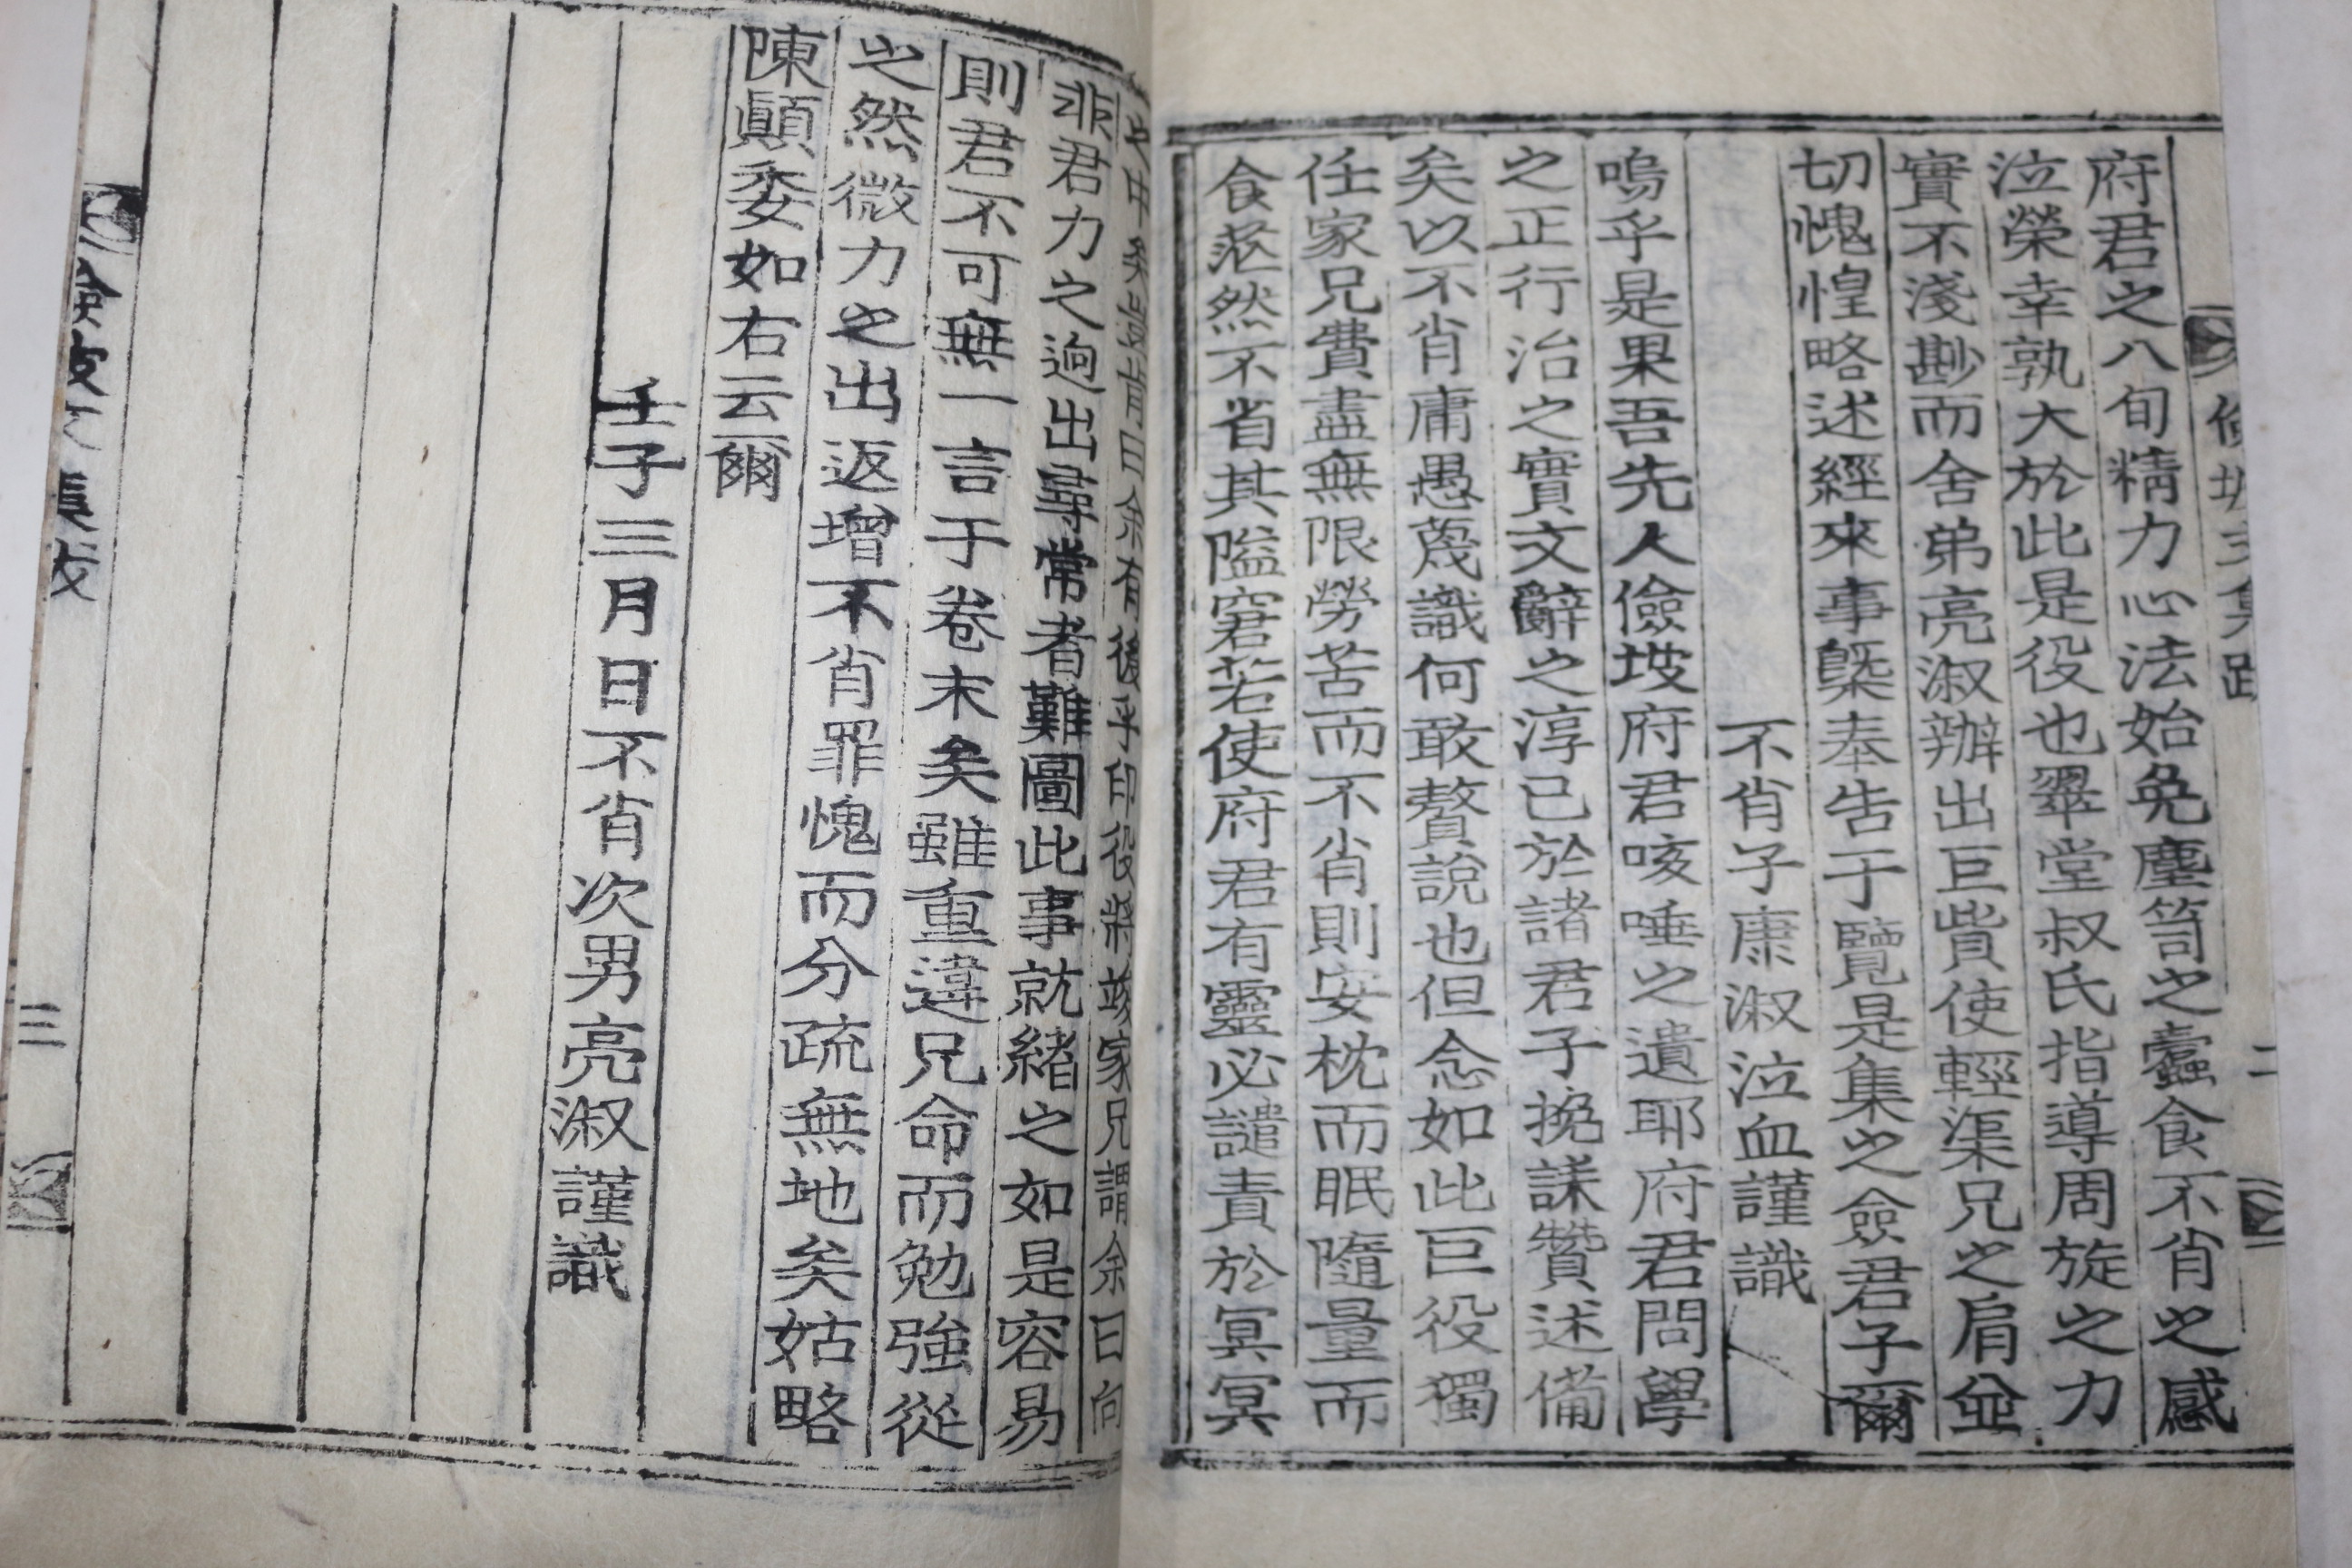 府君之八旬精力心法始免塵笥之蠹食不肖之感
泣榮幸孰大於此是役也翠堂叔氏指導周旋之力
實不淺尠而舍弟亮淑辦出巨貲使輕渠兄之肩並
切愧惶略述經來事槩奉告于覽是集之僉君子爾
不肖子康淑泣血謹識
嗚乎是果吾先人儉坡府君咳唾之遺耶府君問學
之正行治之實文辭之淳已於諸君子挽誄贊述備
矣以不肖庸愚蔑識何敢贅說也但念如此巨役獨
任家兄費盡無限勞苦而不肖則安枕而眠隨量而
食茫然不省其隘窘若使府君有靈必譴責於冥冥
之中矣 余有後乎印役將竣家兄謂余曰向
非君力之逈出尋常者難圖此事就緒之如是容易
則君不可無一言于卷末矣雖重違兄命而勉強從
之然微力之出返增不肖罪愧而分疏無地矣姑略
陳顚委如右云爾
壬子三月日不肖次男亮淑謹識
儉坡文集跋
三
二